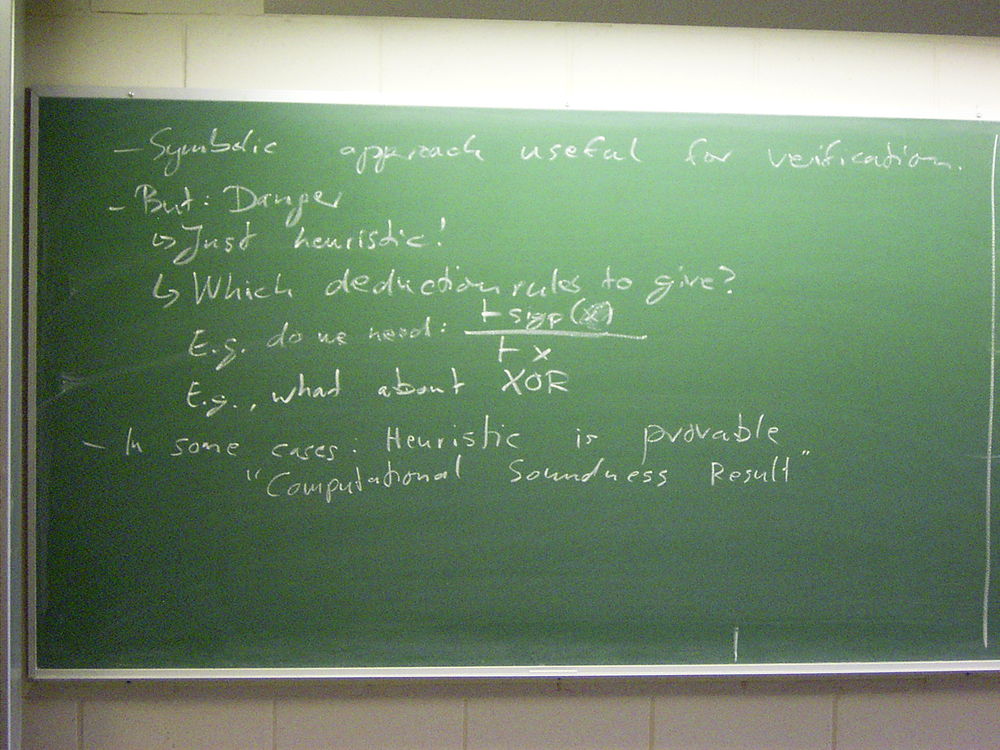 - Symbolic approach useful for verification.
- But: Danger
↳ Just heuristic!
↳ Which deduction rules to give?
E.g. do we need: ⊢ sig(x)
⊢ x
E.g., what about XOR
- In some cases: Heuristic is provable
"Computational Soundness Result"